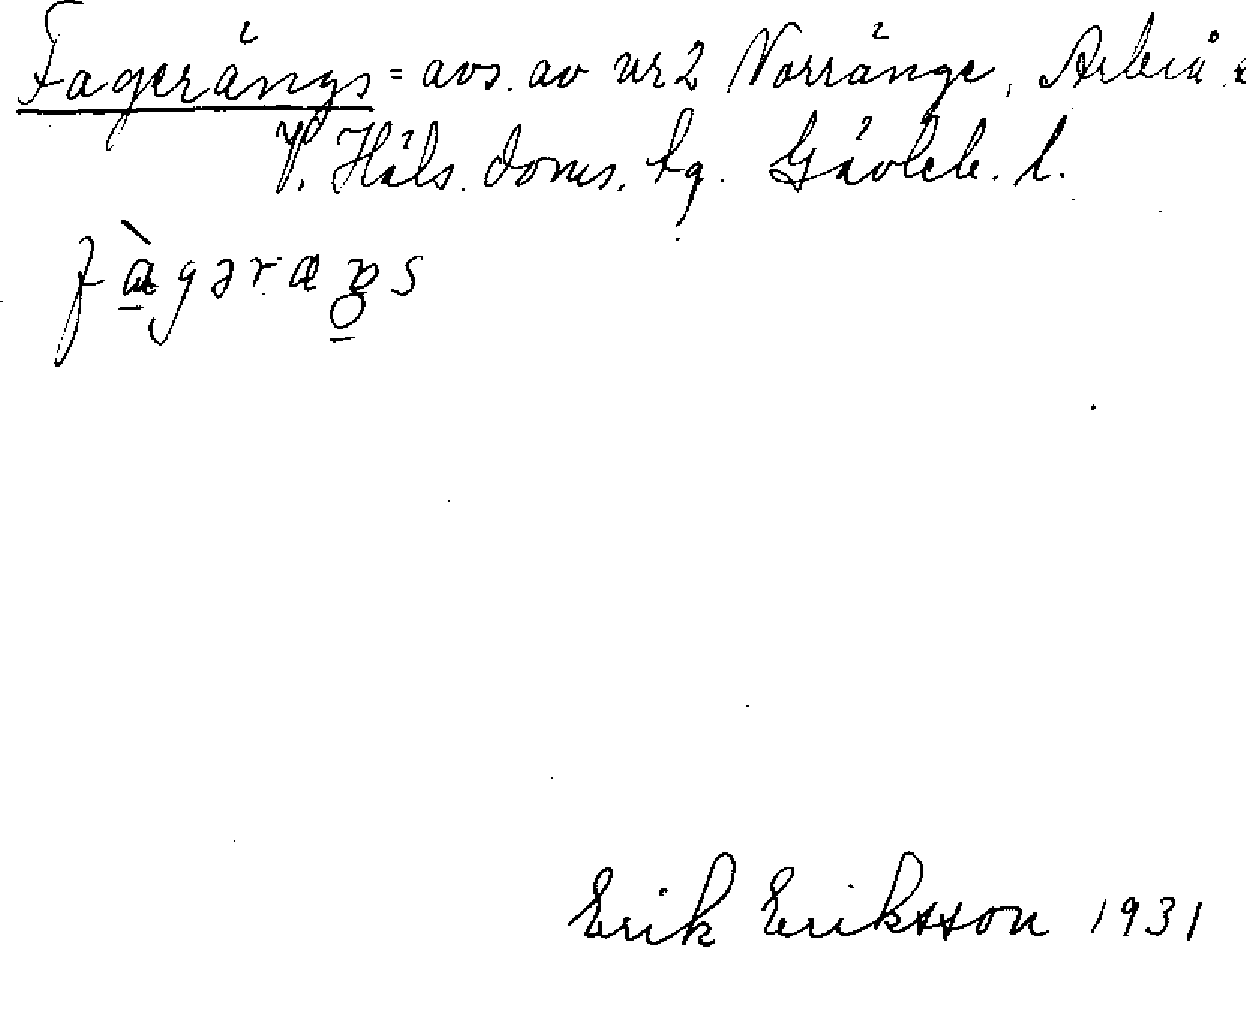 Fagerängs = avs. av nr 2 Norränge, Arbrå s
V. Häls. doms. tg. Gävleb. l.
fàgəræŋs
Erik Eriksson 1931